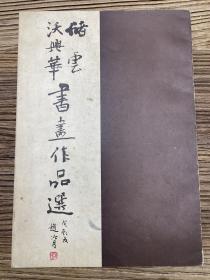 儲雲
沃興華
書畫作品選